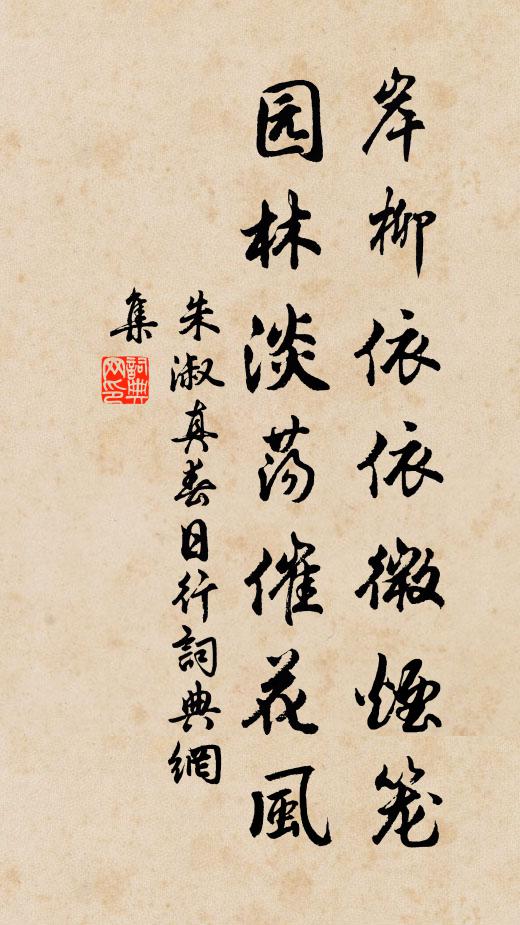 岸柳依依微煙笼
园林淡荡催花風
朱淑真春日行詞典網
集
詞典
网印